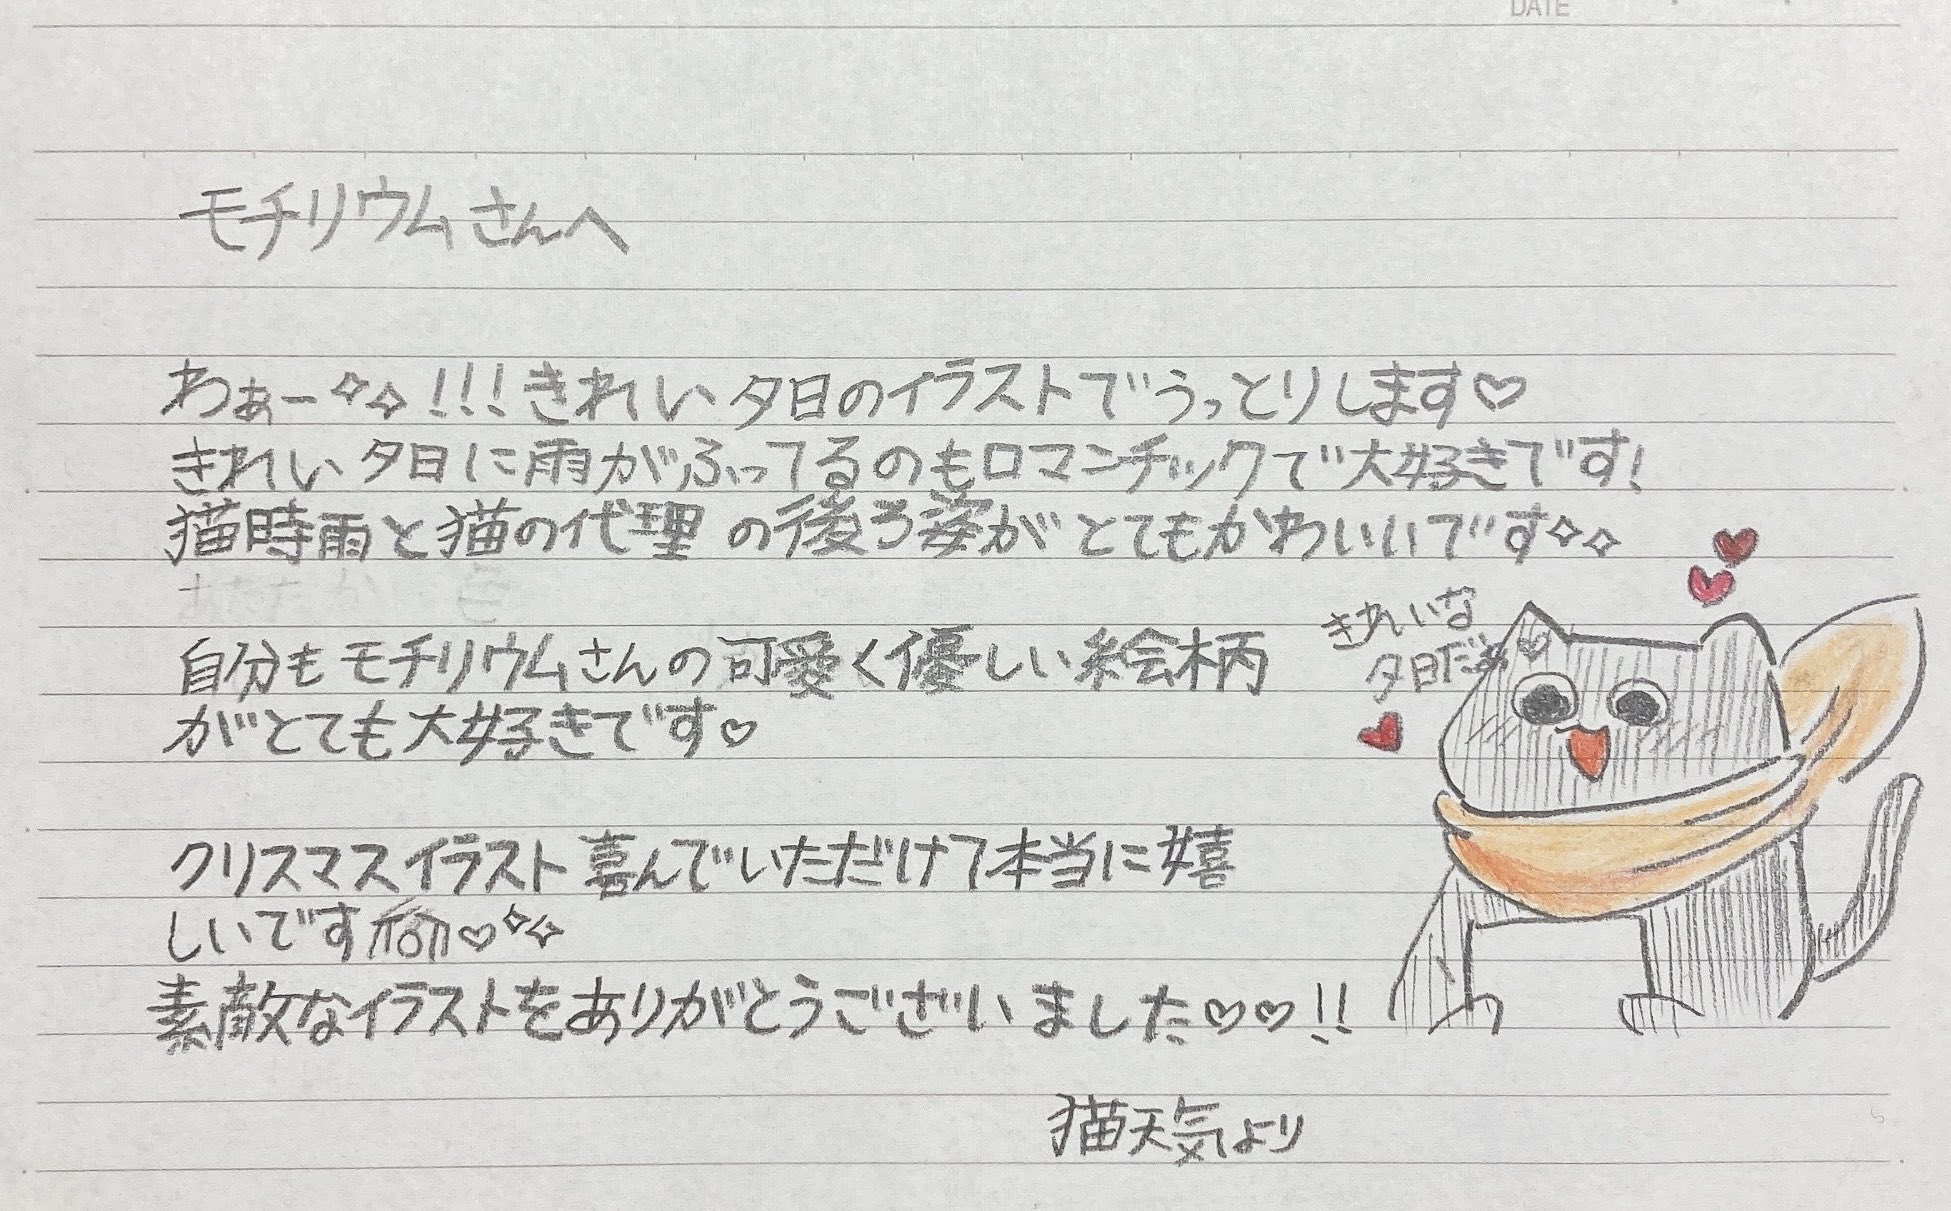 DATE
モチリウムさんへ
わぁー✧✧!!!きれい夕日のイラストでうっとりします♡
きれい夕日に雨がふってるのもロマンチックで大好きです!
猫時雨と猫の代理の後ろ姿がとてもかわいいです✧✧
自分もモチリウムさんの可愛く優しい絵柄
がとても大好きです♡
きれいな
夕日だぁ♡
クリスマスイラスト喜んでいただけて本当に嬉
しいです♡✧✧
素敵なイラストをありがとうございました♡♡!!
猫天気より